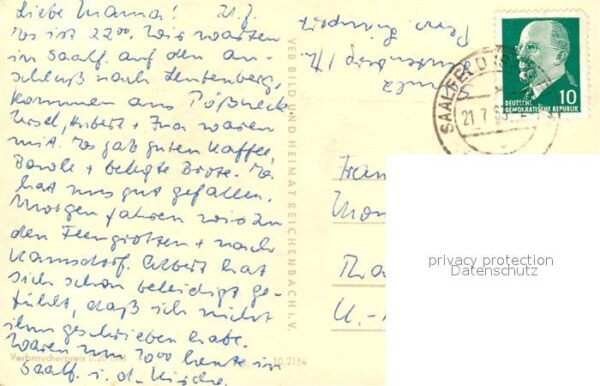 Liebe Mama! 21.7.
Es ist 22⁰⁰. Wir warten
in Saalf. auf den An-
schluß nach Leutenberg,
kommen aus Pößneck
Ursel, Hubert + Ina waren
mit. Es gab guten Kaffee,
+ belegte Brote. Es
hat uns gut gefallen.
Morgen fahren wir zu
den Feengrotten + nach
Kamsdorf. Albert hat
sich schon beleidigt ge-
fühlt, daß ich nicht
ihm geschrieben habe.
Waren um 7⁰⁰ heute in
Saalf. i. d. Kirche.
Verbraucherpreis 0,20
10/2154
VEB BILD UND HEIMAT REICHENBACH I. V.
Leutenberg /Th
SAALFELD (S
21.7.
DEUTSCHE
DEMOKRATISCHE REPUBLIK
10
Frau
Tha
U.-
privacy protection
Datenschutz